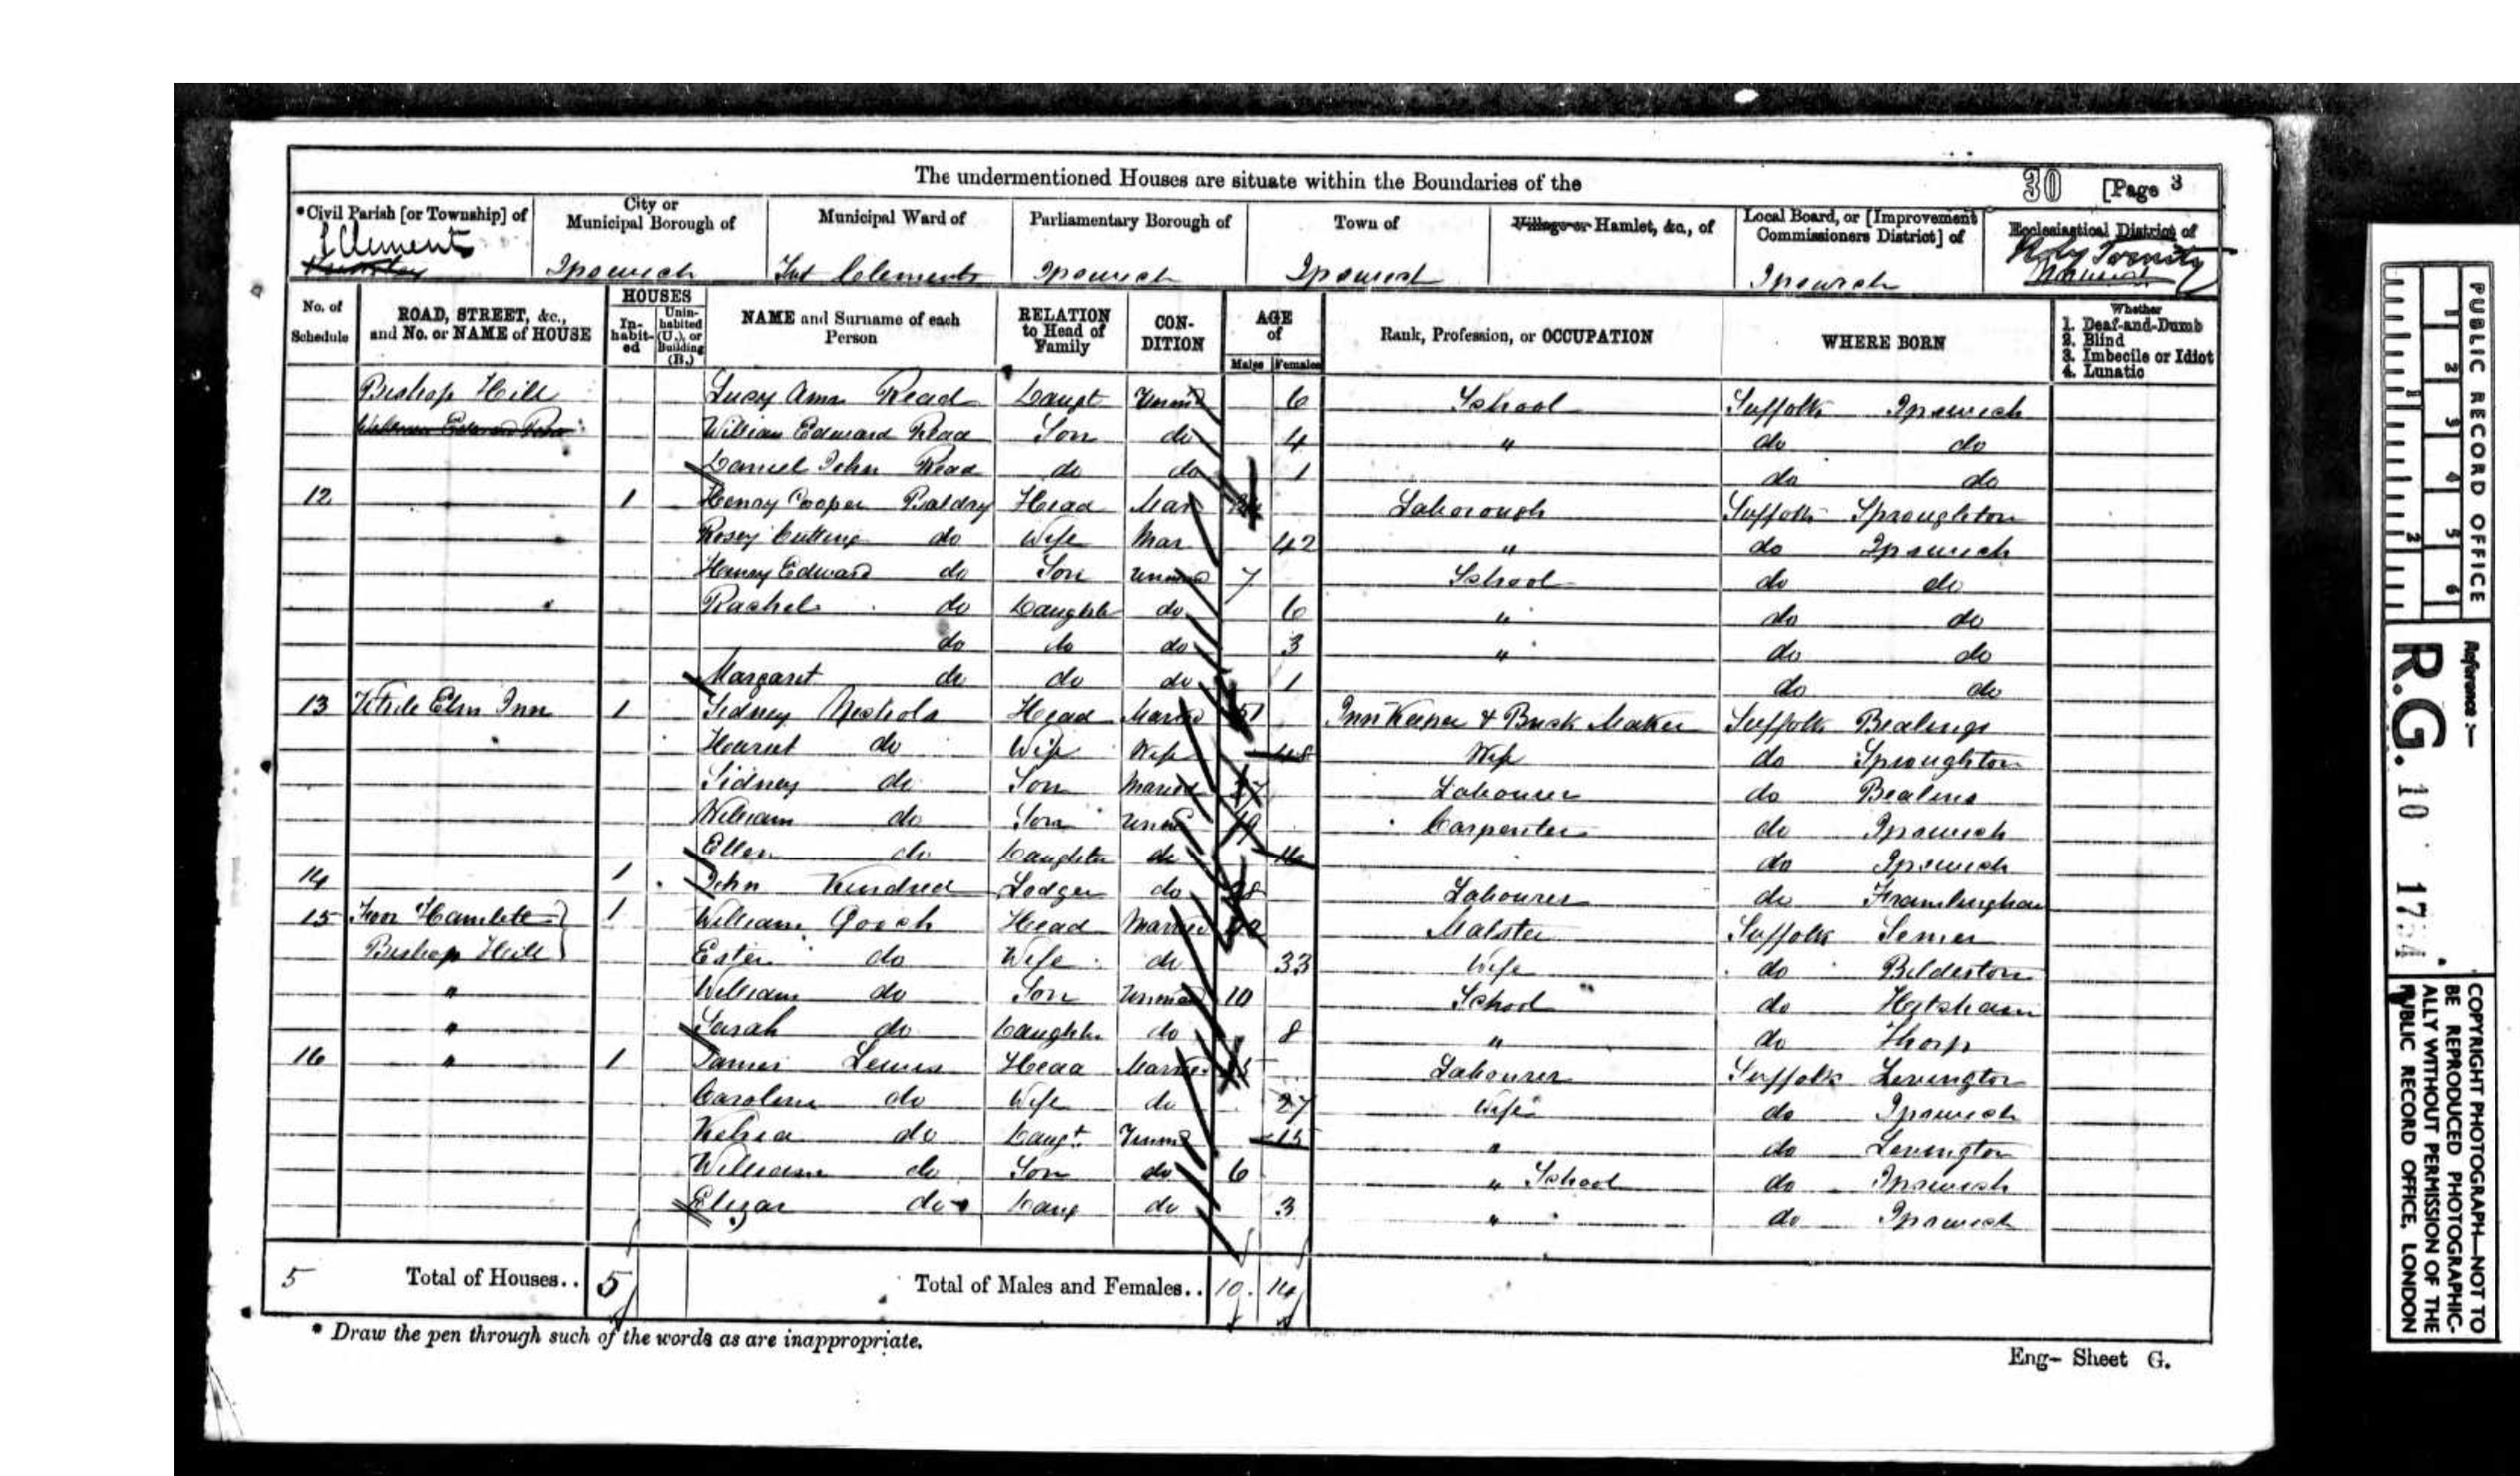 The undermentioned Houses are situate within the Boundaries of the
30 [Page 3
*Civil Parish [or Township] of
City or Municipal Borough of
Municipal Ward of
Parliamentary Borough of
Town of
Village or Hamlet, &c., of
Local Board, or [Improvement Commissioners District] of
Ecclesiastical District of
St Clement Ipswich Clements Ipswich Ipswich Ipswich Holy Trinity
No. of Schedule
ROAD, STREET, &c., and No. or NAME of HOUSE
HOUSES
In-habit-ed
Unin-habited (U.), or Building (B.)
NAME and Surname of each Person
RELATION to Head of Family
CON-DITION
AGE of
Males Females
Rank, Profession, or OCCUPATION
WHERE BORN
Whether
1. Deaf-and-Dumb
2. Blind
3. Imbecile or Idiot
4. Lunatic
Bishop Hill Lucy Ann Read Daugt Unmd 6 School Suffolk Ipswich
William Edward Read Son do 4 " do do
Daniel John Read do do 1 do do
12 1 Henry Cooper Baldry Head Mar Laborough Suffolk Sproughton
Rosey Cutting do Wife Mar 42 " do Ipswich
Henry Edward do Son 7 School do do
Rachel do Daughter do 6 " do do
do do do 3 " do do
Margaret do do do 1 do do
13 Elm Inn 1 Sidney Nichols Head Married 51 Inn Keeper & Brick Maker Suffolk Bealings
Harriet do Wife Wife 48 Wife do Sproughton
Sidney do Son Married 27 Labourer do Bealins
William do Son 19 Carpenter do Ipswich
Ellen do Daughter do 16 do Ipswich
14 1 John Kindred Lodger do Labourer do Framlingham
15 Four Hamlets 1 William Gooch Head Married Malster Suffolk Semer
Bishop Hill Ester do Wife do 33 Wife do Bildeston
" William do Son 10 School do
" Sarah do Daughter do 8 " do Thorp
16 " 1 James Lewis Head Married Labourer Suffolk Levington
Caroline do Wife do 27 Wife do Ipswich
do Daugt 15 " do Levington
William do Son do 6 " School do Ipswich
Elizar do Daug do 3 " do Ipswich
5 Total of Houses.. 5 Total of Males and Females.. 10 14
* Draw the pen through such of the words as are inappropriate.
Eng- Sheet G.
PUBLIC RECORD OFFICE
1 2 3 4 5 6
1 2
Reference :-
R.G. 10
COPYRIGHT PHOTOGRAPH—NOT TO
BE REPRODUCED PHOTOGRAPHIC-
ALLY WITHOUT PERMISSION OF THE
PUBLIC RECORD OFFICE, LONDON